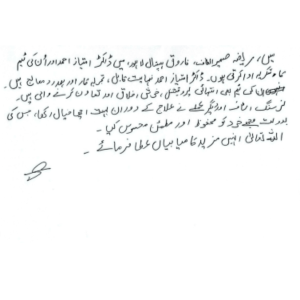 میں، مریضہ صغیر الطاف، فاروق ہسپتال لاہور میں ڈاکٹر امتیاز احمد اور اُن کی ٹیم
کا شکریہ ادا کرتی ہوں۔ ڈاکٹر امتیاز احمد نہایت قابل، تجربہ کار اور ہمدرد معالج ہیں۔
ان کی ٹیم بھی انتہائی پروفیشنل، خوش اخلاق اور تعاون کرنے والی ہیں۔
نرسنگ، سٹاف اور دیگر عملے نے علاج کے دوران بہت اچھا خیال رکھا، جس کی
بدولت میں نے خود کو محفوظ اور مطمئن محسوس کیا۔
اللہ تعالیٰ انہیں مزید کامیابیاں عطا فرمائے۔